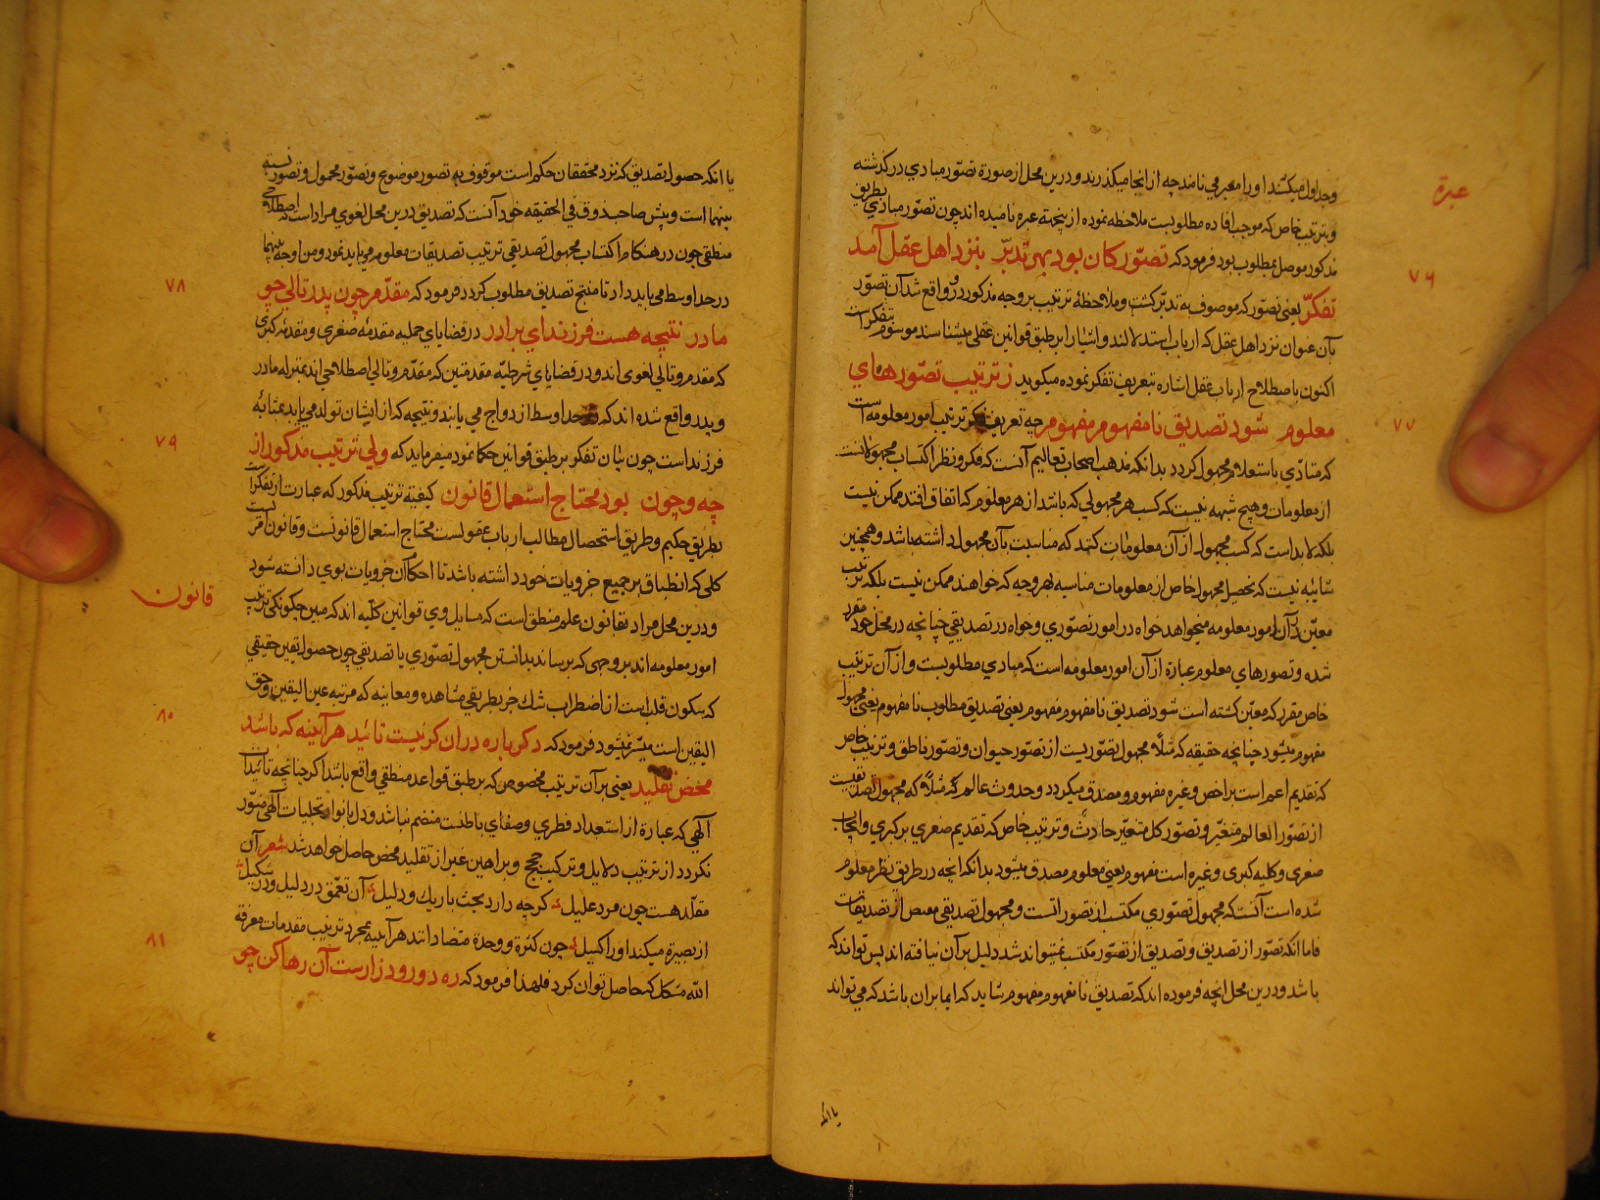 وجداول میکشند اورا معبر می نامند چه از انجا میکذرند و درین محل از صورة تصوّر مبادی در کذشته
عبرة
وبترتیب خاص که موجب افاده مطلوبست ملاحظه نموده ازینجهة عبره نامیده اند چون تصوّر مبادی بطریق
مذکور موصل بمطلوب بود فرمود که تصوّر کان بود بهر تدبّر بنزد اهل عقل آمد
۷۶
تفکّر یعنی تصوّر که موصوف به تدبّر کشت و ملاحظهٔ ترتیب بر وجه مذکور درو واقع شد آن تصوّر
بآن عنوان نزد اهل عقل که ارباب استدلالند و اشیا را بر طبق قوانین عقلی میشناسند موسوم بتفکّر است
اکنون باصطلاح ارباب عقل اشاره بتعریف تفکر نموده میکوید ز ترتیب تصوّرهای
معلوم شود تصدیق نا مفهوم مفهوم چه تعریف فکر ترتیب امور معلومه است
۷۷
که متأدّی باستعلام مجهول کردد بدانکه مذهب اصحاب تعالیم آنست که فکر و نظر اکتساب مجهولانست
از معلومات و هیچ شبهه نیست که کسب هر مجهولی که باشد از هر معلوم که اتفاق افتد ممکن نیست
بلکه لابد است که کسب مجهول از آن معلومات کنند که مناسبت بآن مجهول داشته باشد و همچنین
شایبه نیست که تحصیل مجهول خاص از معلومات مناسبه بهر وجه که خواهند ممکن نیست بلکه ترتیب
معیّن در آن امور معلومه میخواهد خواه در امور تصوّری و خواه در تصدیقی چنانچه در محل خود مقرر
شده و تصورهای معلوم عبارة از آن امور معلومه است که مبادی مطلوبست و از آن ترتیب
خاص مقرر که معیّن کشته است شود تصدیق نا مفهوم مفهوم یعنی تصدیق مطلوب نا مفهوم یعنی مجهول
مفهوم میشود چنانچه حقیقه که مثلًا مجهول تصوّریست از تصوّر حیوان و تصوّر ناطق و ترتیب خاص
که تقدیم اعم است بر اخص و غیره مفهوم و مصدق میکردد و حدوث عالم که مثلًا که مجهول تصدیقیست
از تصوّر العالم متغیّر و تصوّر کل متغیّر حادث و ترتیب خاص که تقدیم صغری بر کبری و ایجاب
صغری و کلیه کبری و غیره است مفهوم یعنی معلوم مصدق میشود بدانکه انچه در طریق نظر معلوم
شده است آنست که مجهول تصوّری مکتسب از تصوراتست و مجهول تصدیقی مقتبص از تصدیقات
فاما انکه تصوّر از تصدیق و تصدیق از تصوّر مکتسب نمیتواند شد دلیل بر آن نیافته اند پس تواند که
باشد و درین محل انچه فرموده اند که تصدیق نا مفهوم مفهوم شاید که ایما بران باشد که می تواند
یا انکه
یا انکه حصول تصدیق که نزد محققان حکم است موقوف به تصور موضوع و تصوّر محمول و تصور نسبه
بینهما است و پیش صاحب ذوق فی الحقیقه خود آنست که تصدیق درین محل لغوی مراد است نه اصطلاحی
منطقی چون در هنکام اکتساب مجهول تصدیقی ترتیب تصدیقات معلوم می باید نمود و من اوجه بینهما
در حد اوسط می باید داد تا منتج تصدیق مطلوب کردد فرمود که مقدّم چون پدر تالی چو
۷۸
مادر نتیجه هست فرزند ای برادر در قضایای حملیه مقدمه صغری و مقدمه کبری
که مقدم و تالی لغوی اند و در قضایای شرطیّه مقدمتین که مقدّم و تالی اصطلاحی اند بمنزله مادر
و پدر واقع شده اند که حد اوسط ازدواج می یابند و نتیجه که از ایشان تولد می یابد بمثابه
فرزند است چون بیان تفکر بر طبق قوانین حکما نمود میفرماید که ولی ترتیب مذکور از
۷۹
چه و چون بود محتاج استعمال قانون کیفیّه ترتیب مذکور که عبارت از تفکّر است
بطریق حکیم و طریق استحصال مطالب ارباب عقولست محتاج استعمال قانونست و قانون امر
کلی که انطباق بر جمیع جزویات خود داشته باشد تا احکام آن جزویات بوی دانسته شود
و درین محل مراد بقانون علم منطق است که مسایل وی قوانین کلّیه اند که مبین چکونکی ترتیب
قانون
امور معلومه اند بر وجهی که برساند بدانستن مجهول تصوّری یا تصدیقی چون حصول یقین حقیقی
که سکون قلب است از اضطراب شک جز بطریق مشاهده و معاینه که مرتبه عین الیقین و حق
الیقین است میسّر نمیشود فرمود که دکر باره دران کر نیست تائید هر آیینه که باشد
۸۰
محض تقلید یعنی بر آن ترتیب مخصوص که بر طبق قواعد منطقی واقع باشد اکر چنانچه تائیدات
آلهی که عبارة از استعداد فطری و صفای باطنست منضم نباشد و دل بانوار تجلیات آلهی منوّر
نکردد از ترتیب دلایل و ترکیب حجج و براهین غیر از تقلید محض حاصل نخواهد شد شعر آن
مقلّد هست چون مرد علیل کرچه دارد بحث باریک و دلیل آن تعمّق در دلیل و در شکیل
از بصیرة میکند او را کسیل چون کثرة و وحدة متضادانند هر آیینه بمجرد ترتیب مقدمات معرفة
الله مشکل که حاصل توان کرد فلهذا فرمود که ره دور و دراز است آن رها کن چو
۸۱